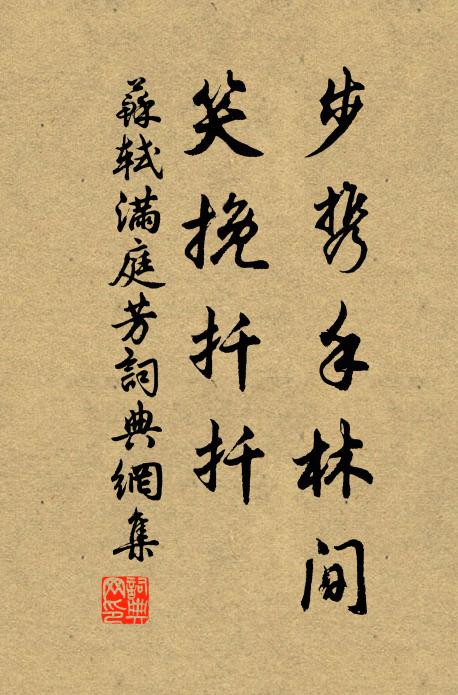 步携手林間
笑挽扦扦
蘇軾满庭芳詞典網集
詞典网印